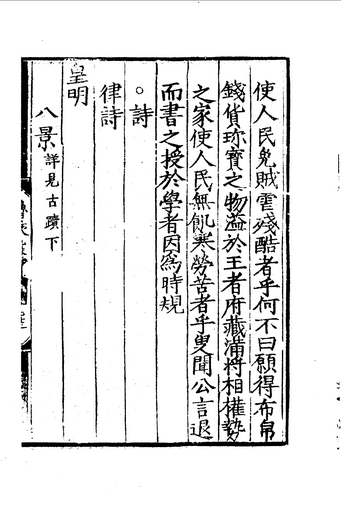 使人民免賊虐殘酷者乎何不曰願得布帛
錢貨珍寶之物溢於王者府藏滿將相權勢
之家使人民無飢寒勞苦者乎叟聞公言退
而書之授於學者因為時規
○詩
律詩
皇明
八景詳見古蹟下